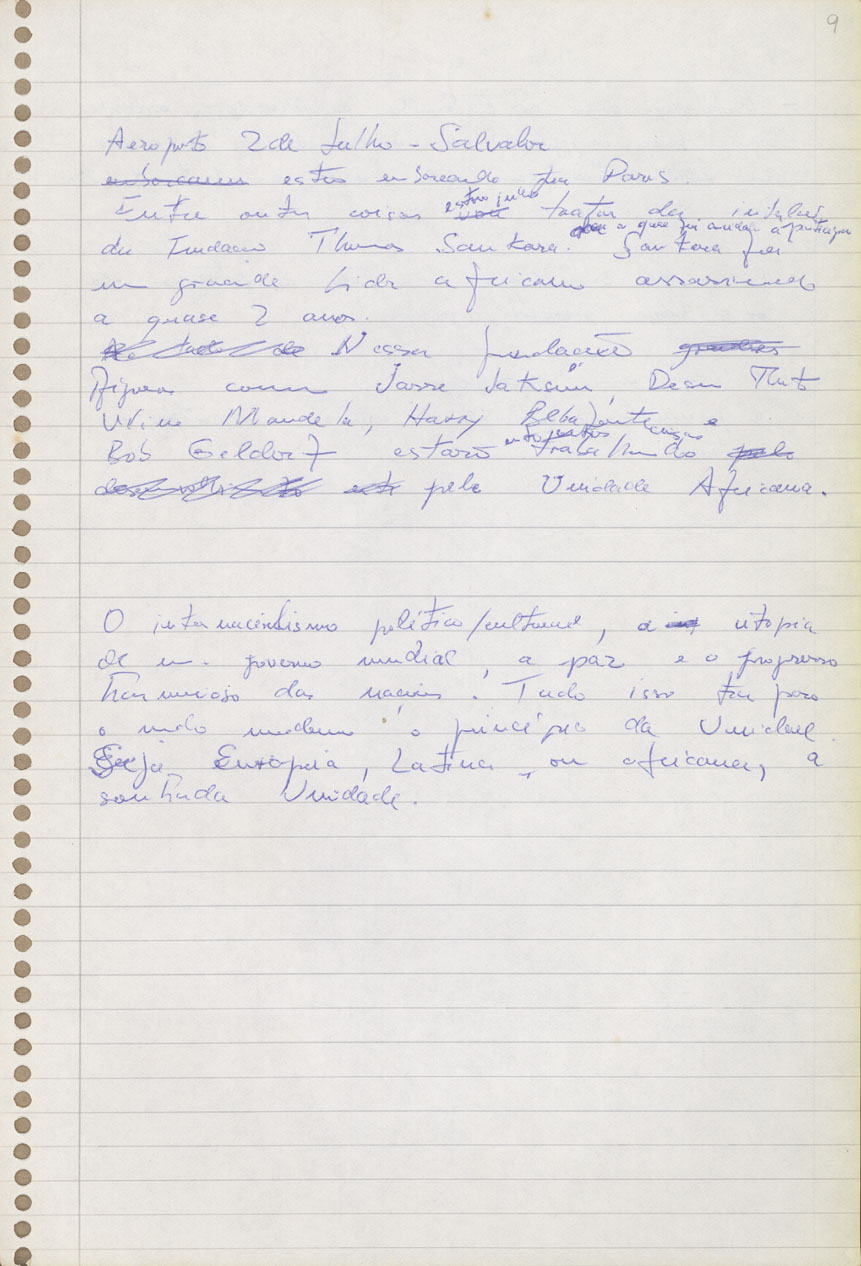 9
Aeroporto 2 de Julho - Salvador
estou embarcando pra Paris.
Entre outras coisas vou tratar da
da Fundação Thomas Sankara. Sankara foi
um grande lider africano assassinado
a quase 2 anos.
Nessa fundação
figuras como Jasse Jakson, Desm Tuto
Wine Mandela, Harry Belbafonte e
Bob Geldorf estarão entre outros trabalhando pelo
pela Unidade Africana.
O internacionalismo político/cultural, a utopia
de um governo mundial, a paz e o progresso
harmonioso das nações. Tudo isso tem para
o mundo moderno o princípio da Unidade.
Seja Européia, Latina, ou africana, a
sonhada Unidade.